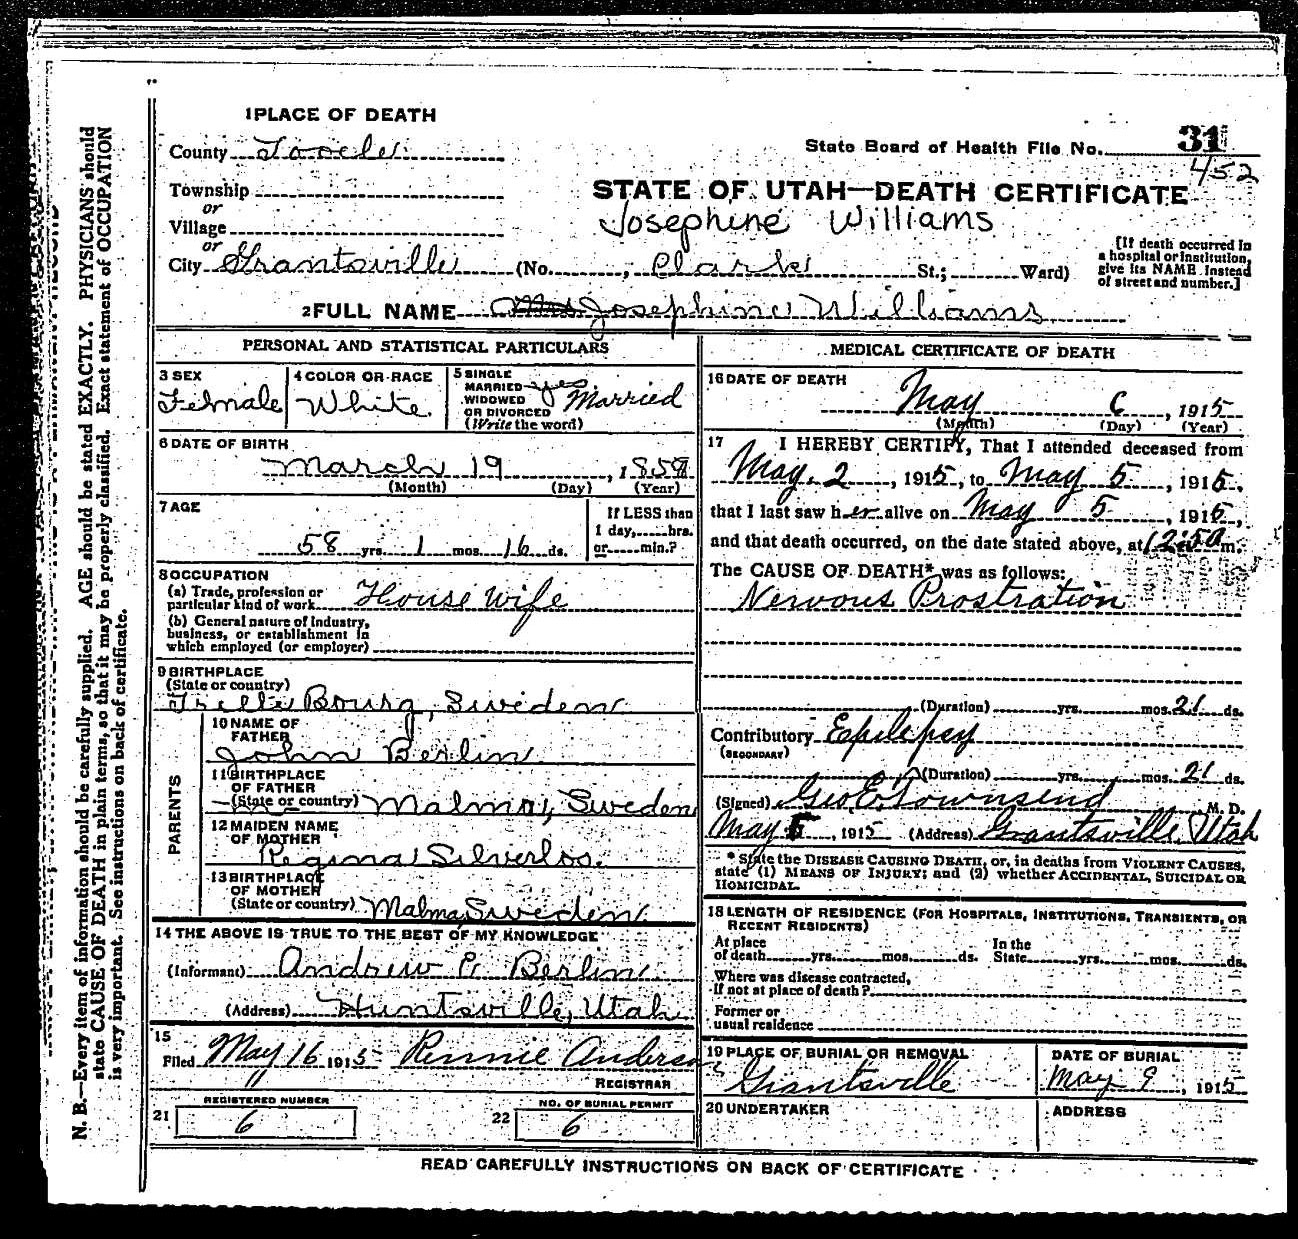 1 PLACE OF DEATH
County Tooele
State Board of Health File No. 31
452
Township
or
Village
or
City Grantsville (No. , Clark St.; Ward)
STATE OF UTAH—DEATH CERTIFICATE
Josephine Williams
[If death occurred in
a hospital or institution,
give its NAME instead
of street and number.]
2 FULL NAME Mrs Josephine Williams
PERSONAL AND STATISTICAL PARTICULARS
3 SEX
Female
4 COLOR OR RACE
White
5 SINGLE
MARRIED yes
WIDOWED
OR DIVORCED
(Write the word)
Married
6 DATE OF BIRTH
March 19, 1858
(Month) (Day) (Year)
7 AGE
58 yrs. 1 mos. 16 ds.
If LESS than
1 day,.....hrs.
or.....min.?
8 OCCUPATION
(a) Trade, profession or
particular kind of work House wife
(b) General nature of industry,
business, or establishment in
which employed (or employer)
9 BIRTHPLACE
(State or country)
Bourg, Sweden
PARENTS
10 NAME OF
FATHER
John Berlin
11 BIRTHPLACE
OF FATHER
(State or country) Malmo, Sweden
12 MAIDEN NAME
OF MOTHER
Regina Silverloo.
13 BIRTHPLACE
OF MOTHER
(State or country) Malma Sweden
14 THE ABOVE IS TRUE TO THE BEST OF MY KNOWLEDGE
(Informant) Andrew P. Berlin
(Address) Huntsville, Utah
15
Filed May 16 1915 Rennie Anderson
REGISTRAR
21 REGISTERED NUMBER
6
22 NO. OF BURIAL PERMIT
6
MEDICAL CERTIFICATE OF DEATH
16 DATE OF DEATH
May 6, 1915
(Month) (Day) (Year)
17 I HEREBY CERTIFY, That I attended deceased from
May. 2, 1915, to May 5, 1915,
that I last saw her alive on May 5, 1915,
and that death occurred, on the date stated above, at 12:50 m.
The CAUSE OF DEATH* was as follows:
Nervous Prostration
(Duration) yrs. mos. 21 ds.
Contributory Epilepsy
(SECONDARY)
(Duration) yrs. mos. 21 ds.
(Signed) Geo E. Townsend M. D.
May 5, 1915 (Address) Grantsville, Utah
* State the DISEASE CAUSING DEATH, or, in deaths from VIOLENT CAUSES,
state (1) MEANS OF INJURY; and (2) whether ACCIDENTAL, SUICIDAL OR
HOMICIDAL.
18 LENGTH OF RESIDENCE (FOR HOSPITALS, INSTITUTIONS, TRANSIENTS, OR
RECENT RESIDENTS)
At place
of death yrs. mos. ds.
In the
State yrs. mos. ds.
Where was disease contracted,
If not at place of death?
Former or
usual residence
19 PLACE OF BURIAL OR REMOVAL
Grantsville
DATE OF BURIAL
May 9, 1915
20 UNDERTAKER
ADDRESS
READ CAREFULLY INSTRUCTIONS ON BACK OF CERTIFICATE
N. B.—Every item of information should be carefully supplied. AGE should be stated EXACTLY. PHYSICIANS should
state CAUSE OF DEATH in plain terms, so that it may be properly classified. Exact statement of OCCUPATION
is very important. See instructions on back of certificate.